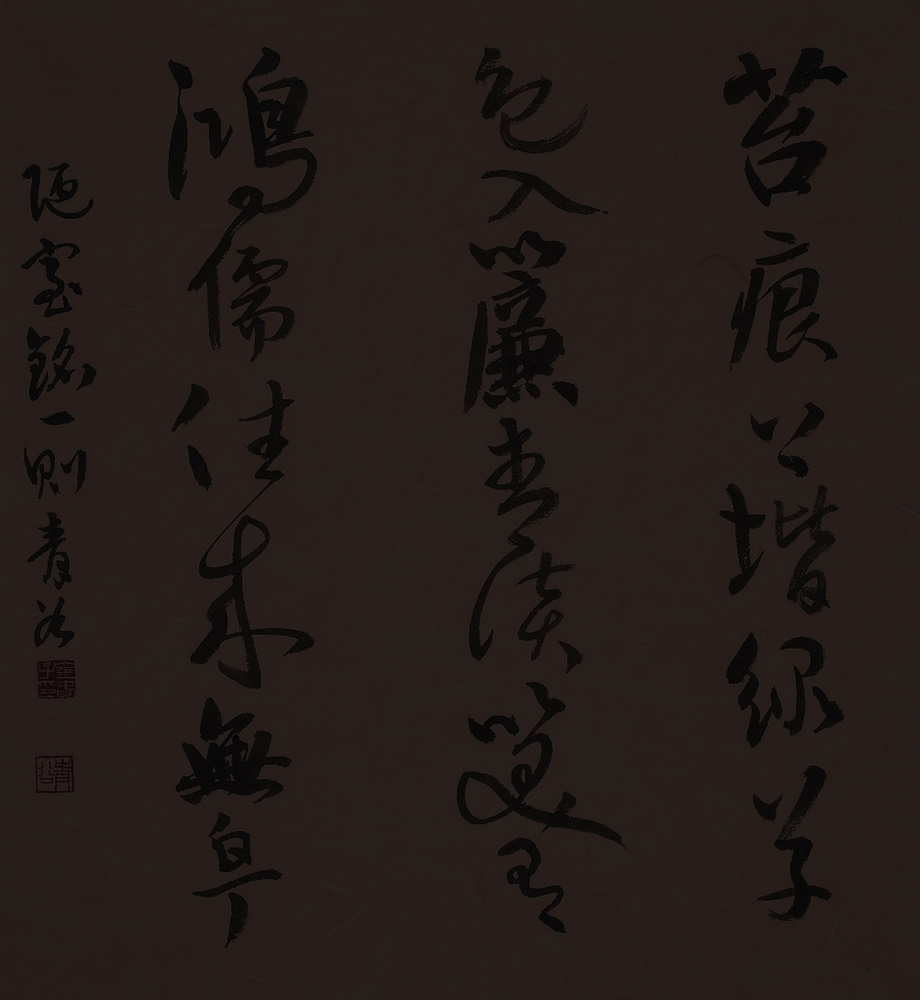 苔痕上堦緑草
色入簾青談笑有
鴻儒往来無白丁
陋室銘一則 青谷